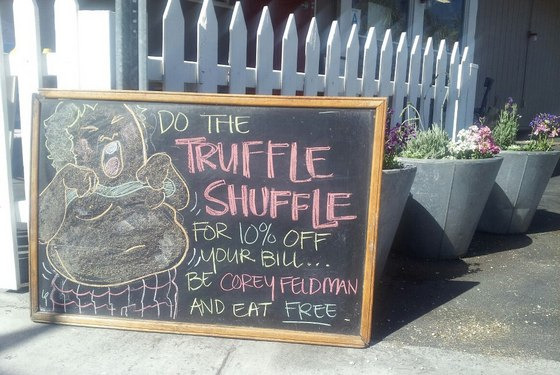 DO THE
TRUFFLE
SHUFFLE
FOR 10% OFF
YOUR BILL...
BE COREY FELDMAN
AND EAT FREE